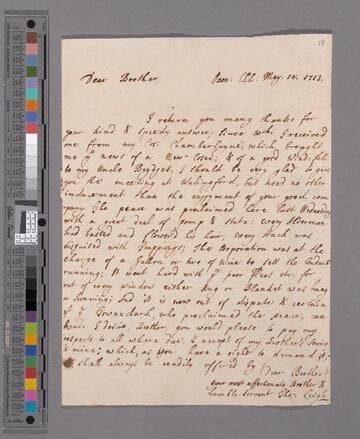 Dear Brother, Oxon: Coll. May. 14. 1713.
I return you many thanks for
your kind & speedy answer, Since wch. I received
one from my Co: Chamberlayne, which brought
me ye news of a New Cosen; & of a good Wind-fall
to my Uncle Brydges, I should be very glad to give
you the meeting at Wallingford, but need no other
inducement than the enjoyment of your good com
pany. The peace was proclaimed here last Wednesday
with a great deal of pomp & state; every Alderman
had and his hair; every Hack was
disguised with Trappings; The Corporation was at the
charge of a Gallon or two of Wine to set the Conduit
running; It went hard with ye poor etc. for
out of every window either Rug or Blanket was hung
a Sunning; And it is now out of dispute & certain
yt ye Townclark, who proclaimed the peace, can
read. I desire, Brother you would please to pay my
respects to all where due, & accept of my Brother's Service
& mine; which, as you have a right to demand it,
shall always be readily offered by Dear Brother
your most affectionate Brother &
humble Servant Tho: Leigh